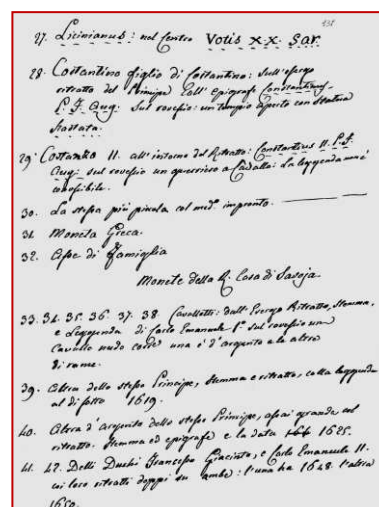 431
27. Licinianus: nel centro Votis XX. Sar.
28. Costantino figlio di Costantino: Sull'esergo
ritratto del Principe coll'Epigrafe Constantinus
P. F. Aug. Sul rovescio: un tempio aperto con Statua
29. Costanzo II. all'intorno del Ritratto: Constantius II. P. F.
Aug: sul rovescio un guerriero a Cavallo: La leggenda non è
conoscibile.
30. La stessa più piccola col med.º impronto.
31. Moneta Greca.
32. Asse di Famiglia
Monete della R. Casa di Savoja.
33. 34. 35. 36. 37. 38. Cavallotti: dall'Esergo Ritratto, Stemma,
e Leggenda di Carlo Emanuele Iº sul rovescio un
Cavallo nudo corre una è d'argento e le altre
di rame.
39. Altra dello stesso Principe, Stemma e ritratto, colla leggenda
al di sotto 1619.
40. Altra d'argento dello stesso Principe, assai grande col
ritratto. Stemma ed epigrafe e la data 1625.
41. 42. Delli Duchi Francesco Giacinto, e Carlo Emanuele II.
coi loro ritratti doppi su ambe: l'una ha 1648. l'altra
1650.